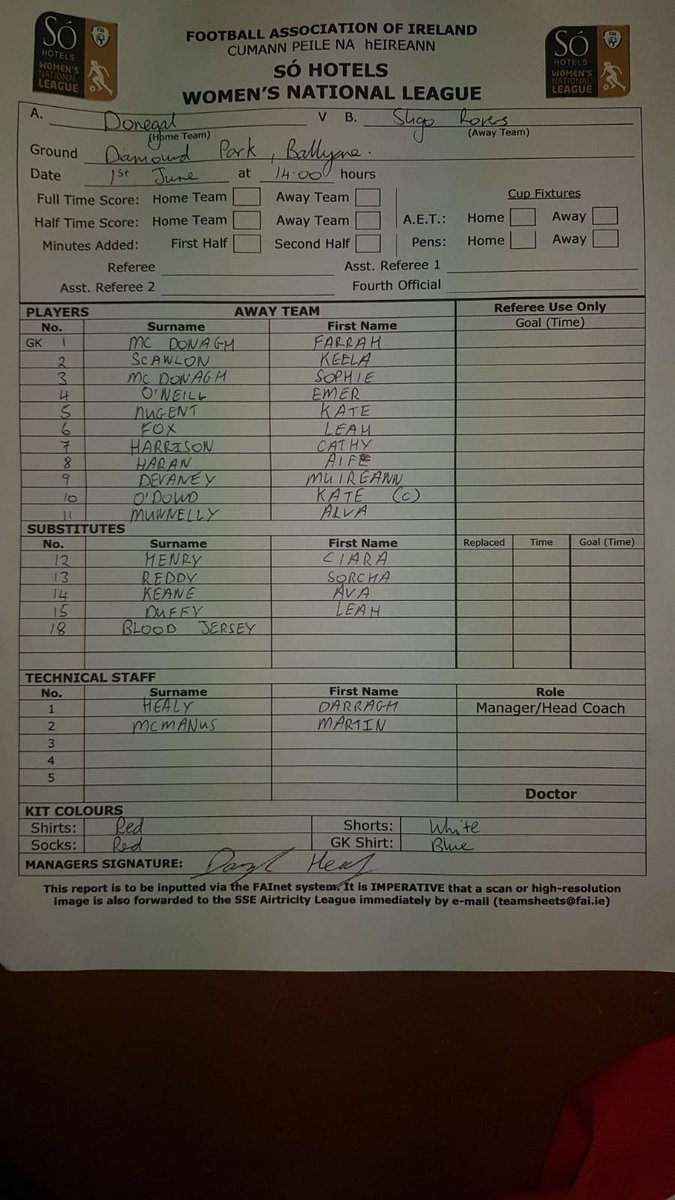 Só HOTELS WOMEN'S NATIONAL LEAGUE
FOOTBALL ASSOCIATION OF IRELAND
CUMANN PEILE NA hEIREANN
SÓ HOTELS
WOMEN'S NATIONAL LEAGUE
Só HOTELS WOMEN'S NATIONAL LEAGUE
A. Donegal V B. Sligo Rovers
(Home Team) (Away Team)
Ground Diamound Park, Ballyare.
Date 1st June at 14:00 hours
Full Time Score: Home Team Away Team Cup Fixtures
Half Time Score: Home Team Away Team A.E.T.: Home Away
Minutes Added: First Half Second Half Pens: Home Away
Referee Asst. Referee 1
Asst. Referee 2 Fourth Official
PLAYERS AWAY TEAM Referee Use Only
No. Surname First Name Goal (Time)
GK 1 MC DONAGH FARRAH
2 SCANLON KEELA
3 MC DONAGH SOPHIE
4 O'NEILL EMER
5 NUGENT KATE
6 FOX LEAH
7 HARRISON CATHY
8 HARAN AIFE
9 DEVANEY MUIREANN
10 O'DOWD KATE (C)
11 MUNNELLY ALVA
SUBSTITUTES
No. Surname First Name Replaced Time Goal (Time)
12 HENRY CIARA
13 REDDY SORCHA
14 KEANE AVA
15 DUFFY LEAH
18 BLOOD JERSEY
TECHNICAL STAFF
No. Surname First Name Role
1 HEALY DARRAGH Manager/Head Coach
2 MCMANUS MARTIN
3
4
5
Doctor
KIT COLOURS
Shirts: Red Shorts: White
Socks: Red GK Shirt: Blue
MANAGERS SIGNATURE:
This report is to be inputted via the FAInet system. It is IMPERATIVE that a scan or high-resolution
image is also forwarded to the SSE Airtricity League immediately by e-mail (teamsheets@fai.ie)